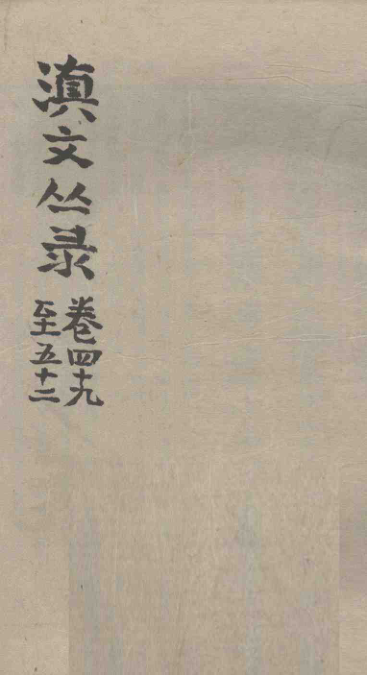 滇文丛录
卷四十九
至五十二